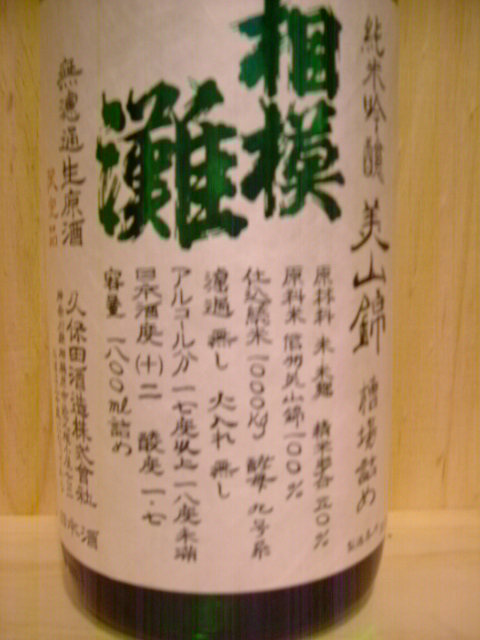 純米吟醸 美山錦 槽場詰め
相模
灘
原材料 米 米麹 精米歩合 五〇%
原料米 信州美山錦一〇〇%
仕込総米 一〇〇〇kg 酵母 九号系
濾過 無し 火入れ 無し
アルコール分 一七度以上一八度未満
日本酒度(十)二 酸度 一・七
容量 一八〇〇ml詰め
無濾過生原酒
久保田酒造株式会社
日本酒